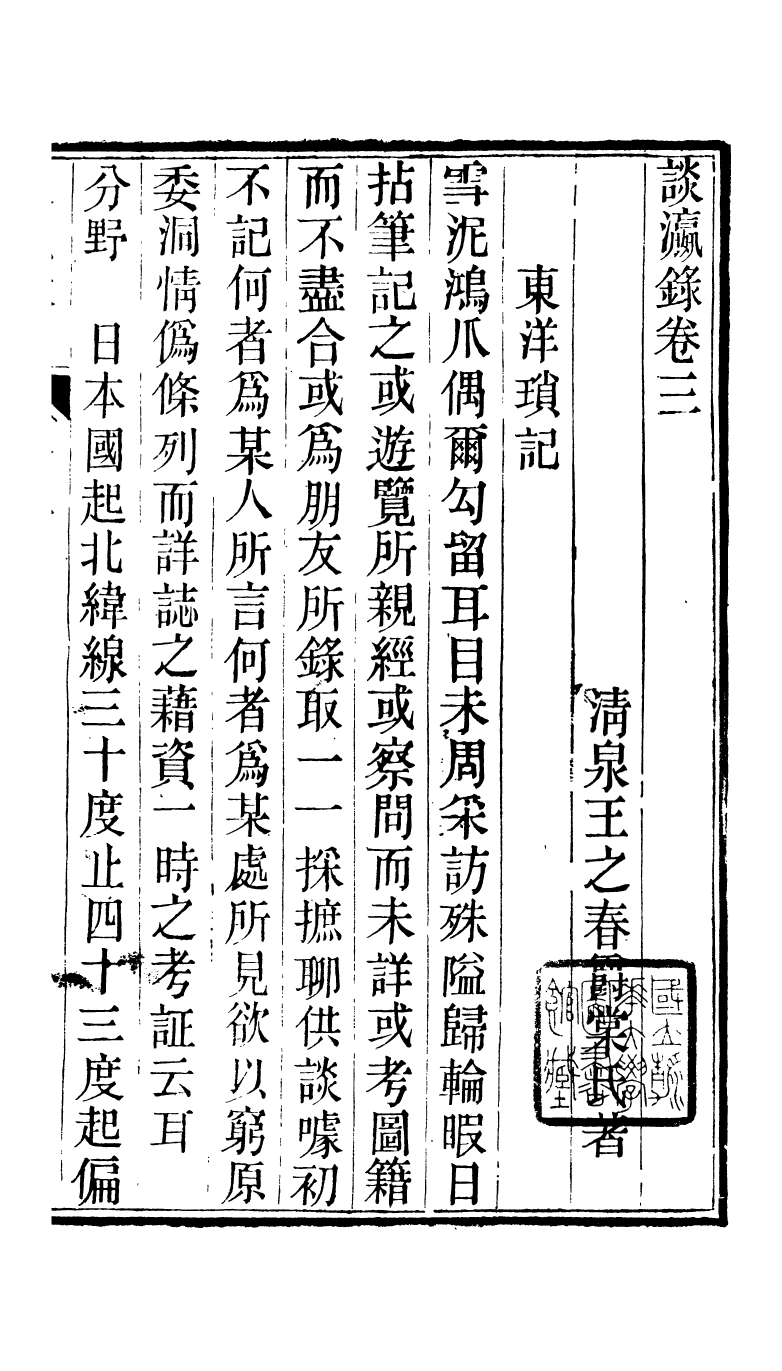 談瀛錄卷三
清泉王之春爵棠氏著
東洋瑣記
雪泥鴻爪偶爾勾留耳目未周采訪殊隘歸輪暇日
拈筆記之或遊覽所親經或察問而未詳或考圖籍
而不盡合或爲朋友所錄取一一採摭聊供談噱初
不記何者爲某人所言何者爲某處所見欲以窮原
委洞情僞條列而詳誌之藉資一時之考証云耳
分野　日本國起北緯線三十度止四十三度起偏